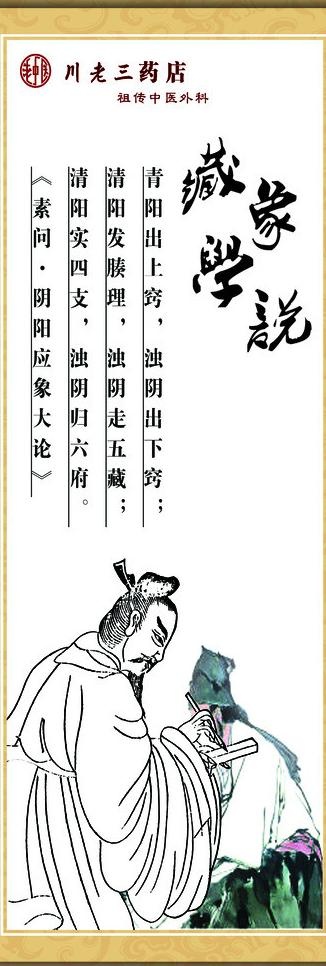 川老三药店
祖传中医外科
藏象學説
青阳出上窍，浊阴出下窍；
清阳发腠理，浊阴走五藏；
清阳实四支，浊阴归六府。
《素问·阴阳应象大论》